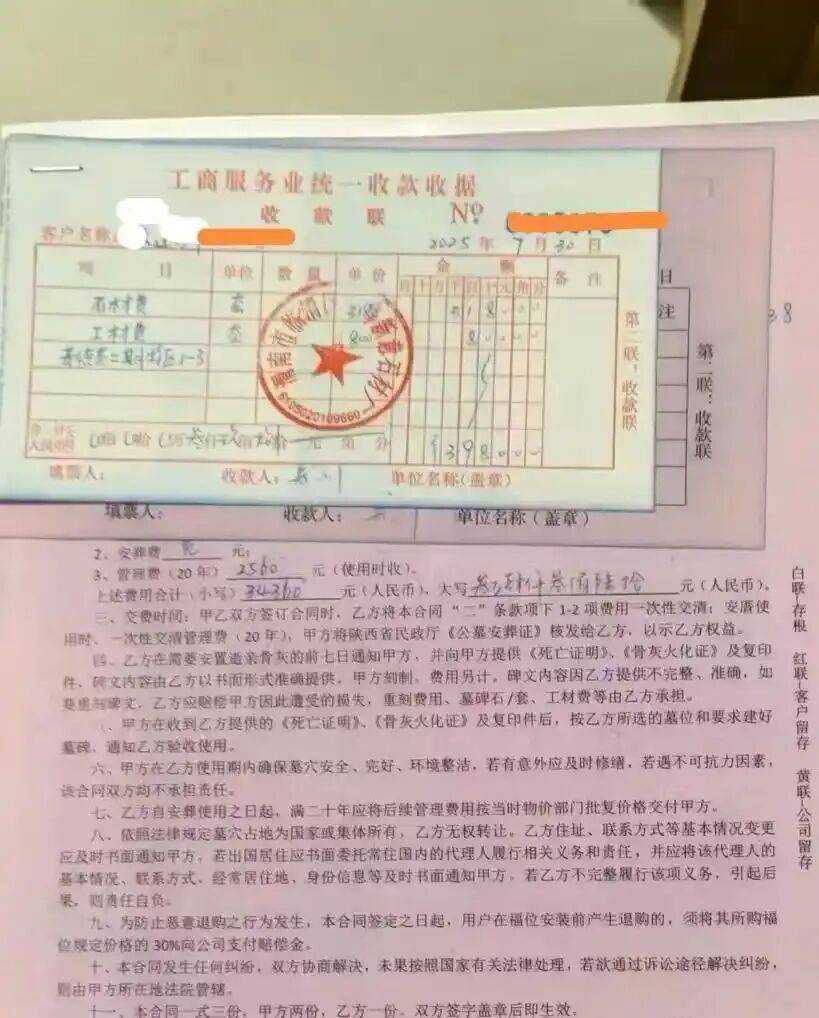 工商服务业统一收款收据
收款联 №
客户名称:
2025年7月30日
项目 单位 数量 单价 金额 备注
百十万千百十元角分
石材费 套 3180 318000
工本费 套 800 80000
二期 区1-3
398000
合计 人民币 佰 拾 万叁仟 佰 拾 元 角 分
填票人: 收款人: 单位名称(盖章)
第二联:收款联
渭南市临渭 石材厂
6105020109660
日
注
38
第二联:收款联
填票人: 收款人: 单位名称(盖章)
2、安葬费 元;
3、管理费(20年) 2560 元(使用时收)。
上述费用合计(小写) 34360 元(人民币),大写 叁万肆仟叁佰陆拾 元(人民币)。
三、交费时间:甲乙双方签订合同时,乙方将本合同“二”条款项下1-2项费用一次性交清;安厝使
用时、一次性交清管理费(20年),甲方将陕西省民政厅《公墓安葬证》核发给乙方,以示乙方权益。
四、乙方在需要安置适亲骨灰的前七日通知甲方,并向甲方提供《死亡证明》、《骨灰火化证》及复印
件、碑文内容由乙方以书面形式准确提供,甲方刻制,费用另计。碑文内容因乙方提供不完整、准确,如
要重刻碑文,乙方应赔偿甲方因此遭受的损失,重刻费用、墓碑石/套、工材费等由乙方承担。
、甲方在收到乙方提供的《死亡证明》、《骨灰火化证》及复印件后,按乙方所选的墓位和要求建好
墓碑,通知乙方验收使用。
六、甲方在乙方使用期内确保墓穴安全、完好、环境整洁,若有意外应及时修缮,若遇不可抗力因素,
该合同双方均不承担责任。
七、乙方自安葬使用之日起,满二十年应将后续管理费用按当时物价部门批复价格交付甲方。
八、依照法律规定墓穴占地为国家或集体所有,乙方无权转让。乙方住址、联系方式等基本情况变更
应及时书面通知甲方。若出国居住应书面委托常住国内的代理人履行相关义务和责任,并应将该代理人的
基本情况、联系方式、经常居住地、身份信息等及时书面通知甲方。若乙方不完整履行该项义务,引起后
果,则责任自负。
九、为防止恶意退购之行为发生,本合同签定之日起,用户在福位安装前产生退购的,须将其所购福
位规定价格的30%向公司支付赔偿金。
十、本合同发生任何纠纷,双方协商解决,未果按照国家有关法律处理,若欲通过诉讼途径解决纠纷,
则由甲方所在地法院管辖。
十一、本合同一式三份,甲方两份,乙方一份。双方签字盖章后即生效。
白联-存根 红联-客户留存 黄联-公司留存